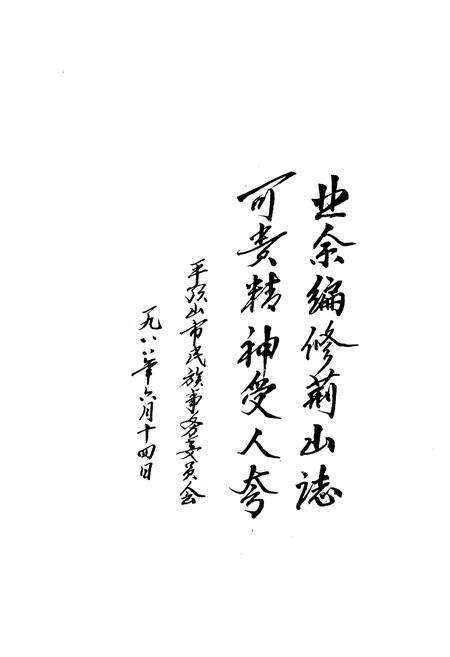 业余编修荆山誌
可贵精神受人夸
平顶山市民族事务委员会
一九八八年六月十四日